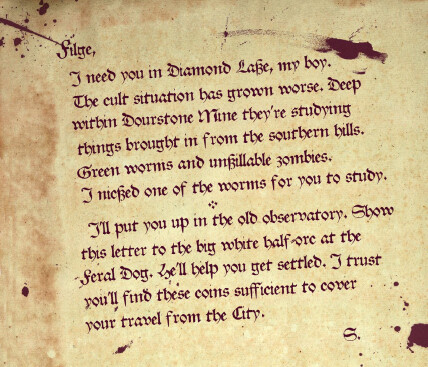 Filge,
I need you in Diamond Lake, my boy.
The cult situation has grown worse. Deep
within Dourstone Mine they're studying
things brought in from the southern hills.
Green worms and unkillable zombies.
I nicked one of the worms for you to study.
I'll put you up in the old observatory. Show
this letter to the big white half-orc at the
Feral Dog. He'll help you get settled. I trust
you'll find these coins sufficient to cover
your travel from the City.
S.